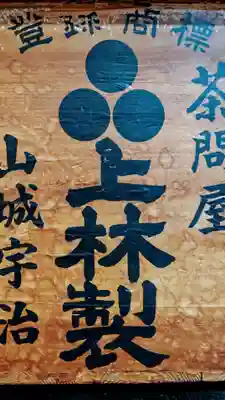 標商録登
茶問屋
上林製
山城宇治